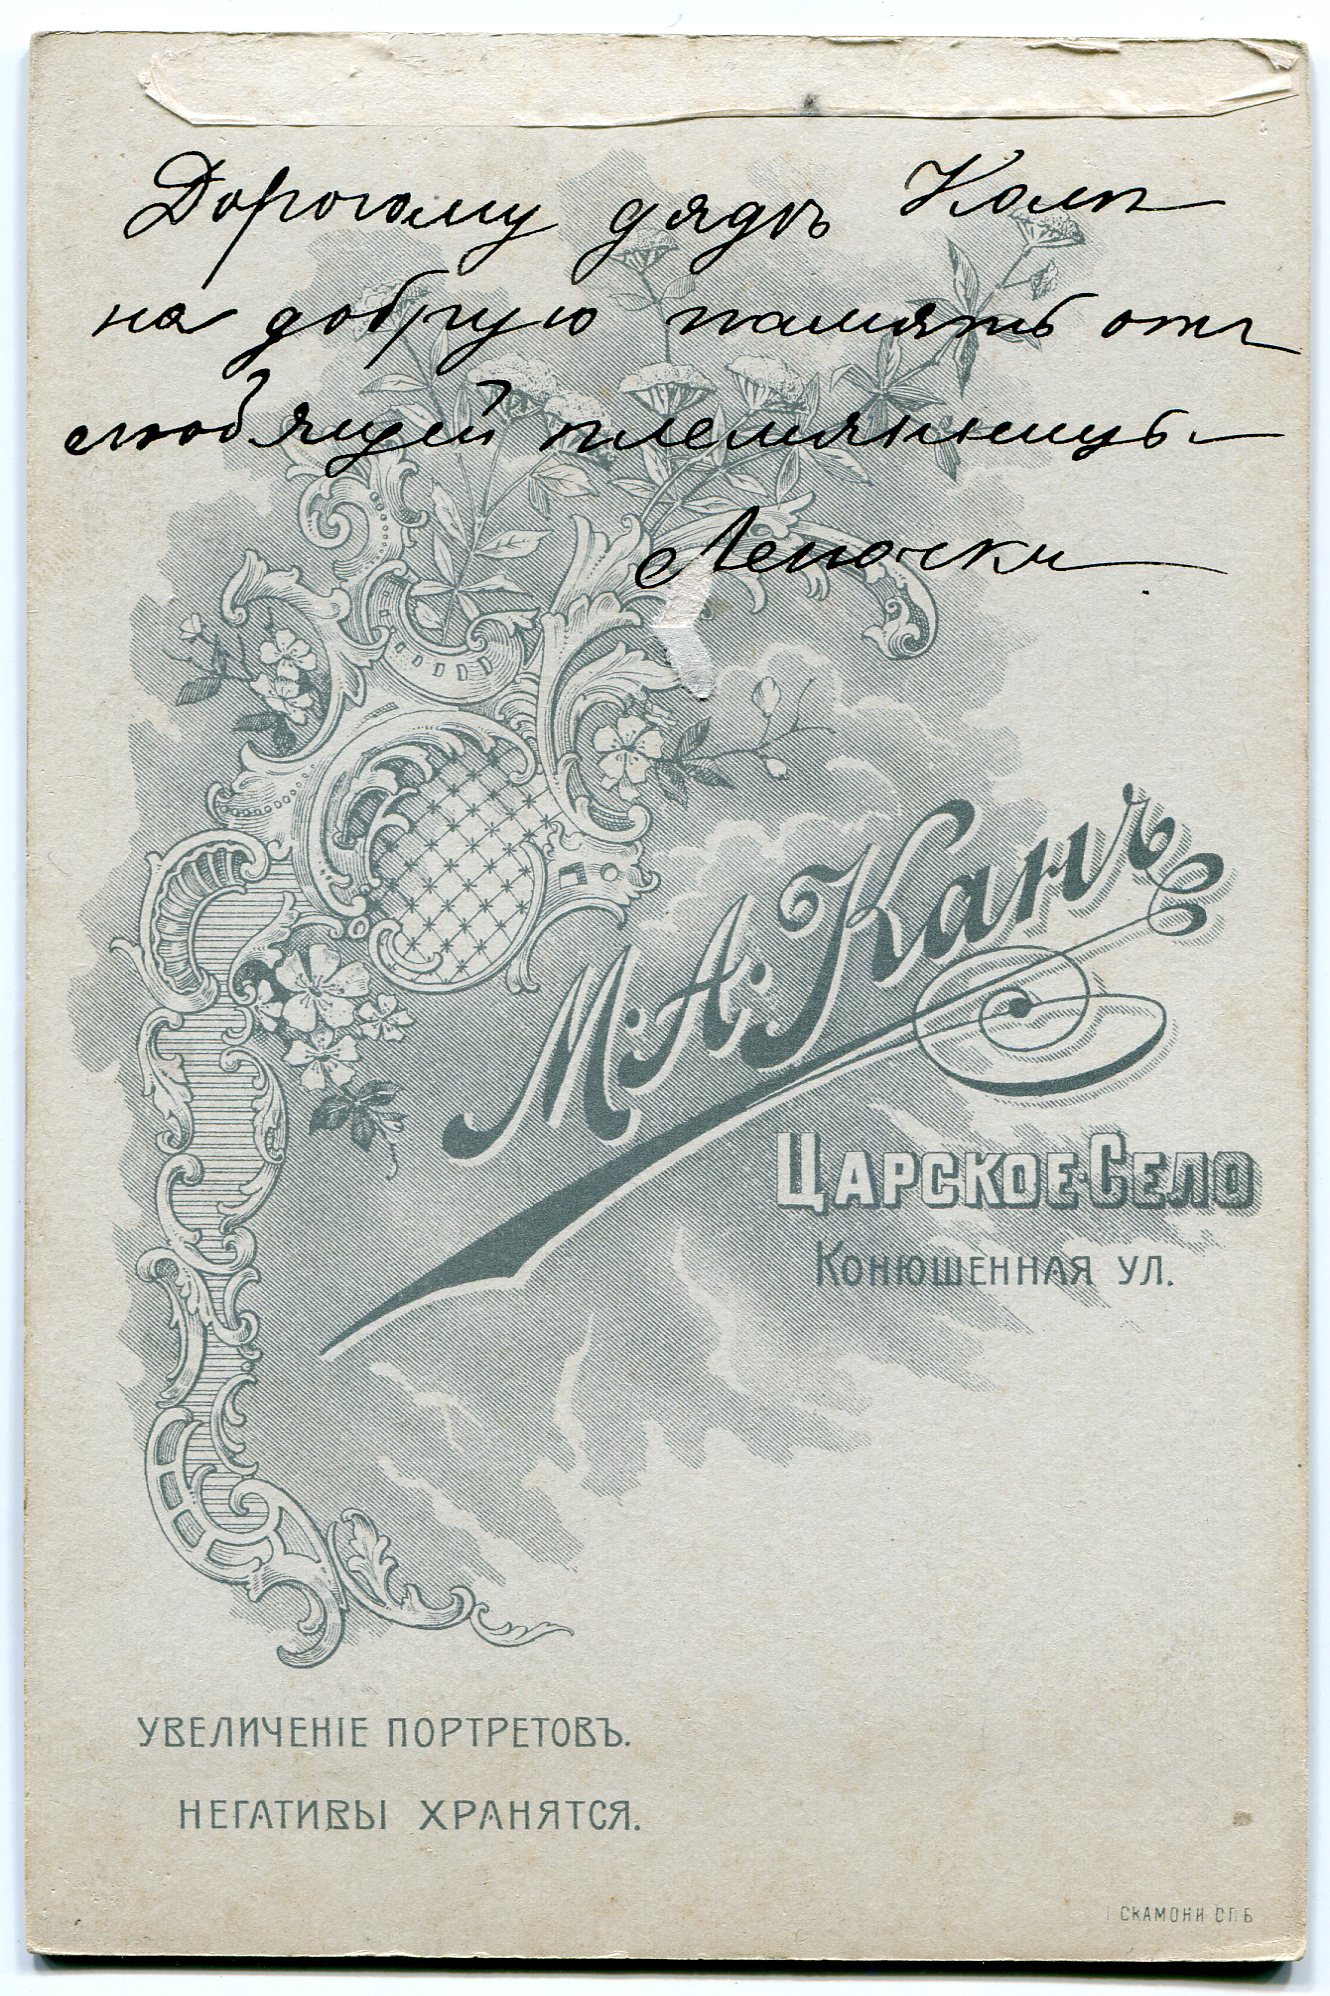 Дорогому дядѣ Колѣ
на добрую память отъ
любящей племянницы
Леночки
М. А. Канъ
ЦАРСКОЕ-СЕЛО
КОНЮШЕННАЯ УЛ.
УВЕЛИЧЕНІЕ ПОРТРЕТОВЪ.
НЕГАТИВЫ ХРАНЯТСЯ.
СКАМОНИ СПБ